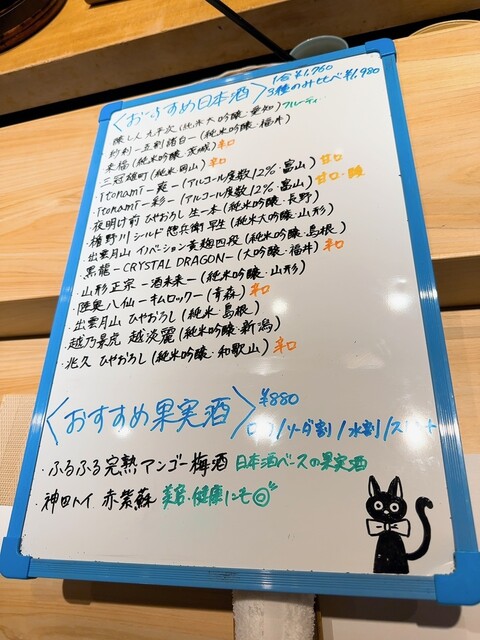 〈おすすめ日本酒〉 1合¥1,760
3種のみ比べ¥1,980
醸し人九平次(純米大吟醸・愛知) フルーティ
紗利 -五割諸白-(純米吟醸・福井)
来福(純米吟醸・茨城) 辛口
三冠雄町(純米・岡山) 辛口
・Itonami -爽-(アルコール度数12%・富山) 甘口
・Itonami -彩-(アルコール度数12%・富山) 甘口・酸
・夜明け前 ひやおろし 生一本(純米吟醸・長野)
・楯野川 シールド 惣兵衛早生(純米大吟醸・山形)
・出雲月山 イノベーション 黄麹四段(純米吟醸・島根)
・黒龍 -CRYSTAL DRAGON-(大吟醸・福井) 辛口
・山形正宗 -酒未来-(純米吟醸・山形)
・陸奥八仙 -キムロック-(青森) 辛口
・出雲月山 ひやおろし(純米・島根)
・越乃景虎 越淡麗(純米吟醸・新潟)
・兆久 ひやおろし(純米吟醸・和歌山) 辛口
〈おすすめ果実酒〉 ¥880
ロック/ソーダ割/水割/ストレート
・ふるふる完熟アンゴー梅酒 日本酒ベースの果実酒
・神田トイ 赤紫蘇 美容・健康にも◎